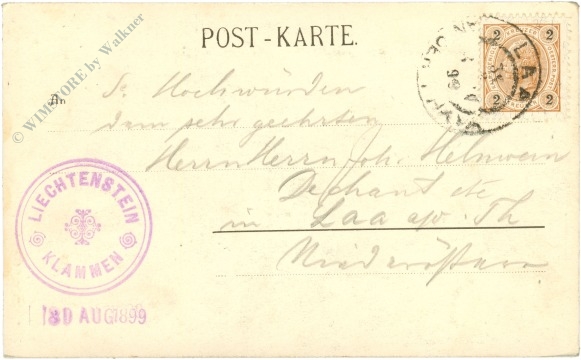 POST-KARTE.
An
Sr Hochwürden
dem sehr geehrten
Herrn Herrn Joh. Helmwein
Dechant etc
in Laa a/d. Th
Niederösterr
2 2
2 2
LAA
99
LIECHTENSTEIN
KLAMMEN
30 AUG 1899
© WIMSTORE by Walkner